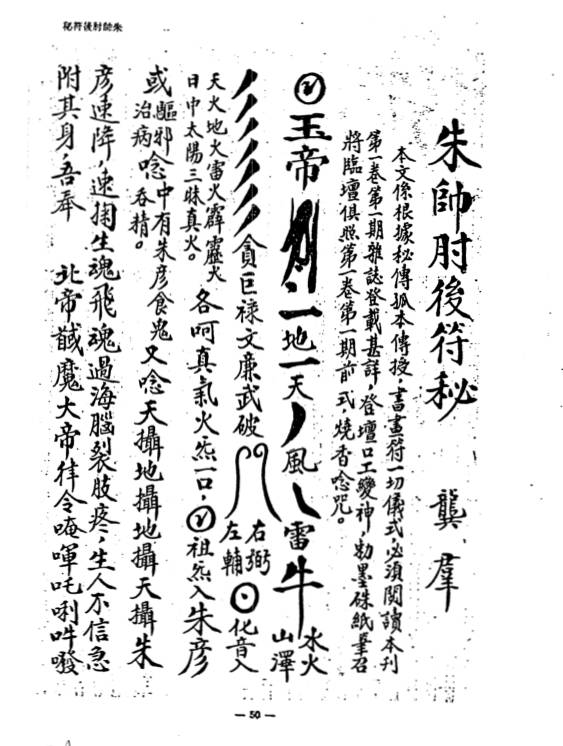 朱帥肘後符秘
朱帥肘後符秘
龔群
本文係根據秘傳孤本傳授,書畫符一切儀式,必須閱讀本刊
第一卷第一期雜誌登載甚詳,登壇口工變神,勅墨硃紙筆召
將臨壇俱照第一卷第一期前式,燒香唸咒。
玉帝 一地一天 風 雷 水火山澤
貪巨禄文廉武破 右弼左輔 化音入
天火地火雷火霹靂火
日中太陽三昧真火。
各呵真氣火炁一口, 祖炁入朱彦
或驅邪治病唸中有朱彦食鬼吞精。又唸天攝地攝地攝天攝朱
彦速降,速掏生魂飛魂過海腦裂肢疼,生人不信急
附其身,吾奉 北帝馘魔大帝律令唵嗶吒唎吽發
— 50 —